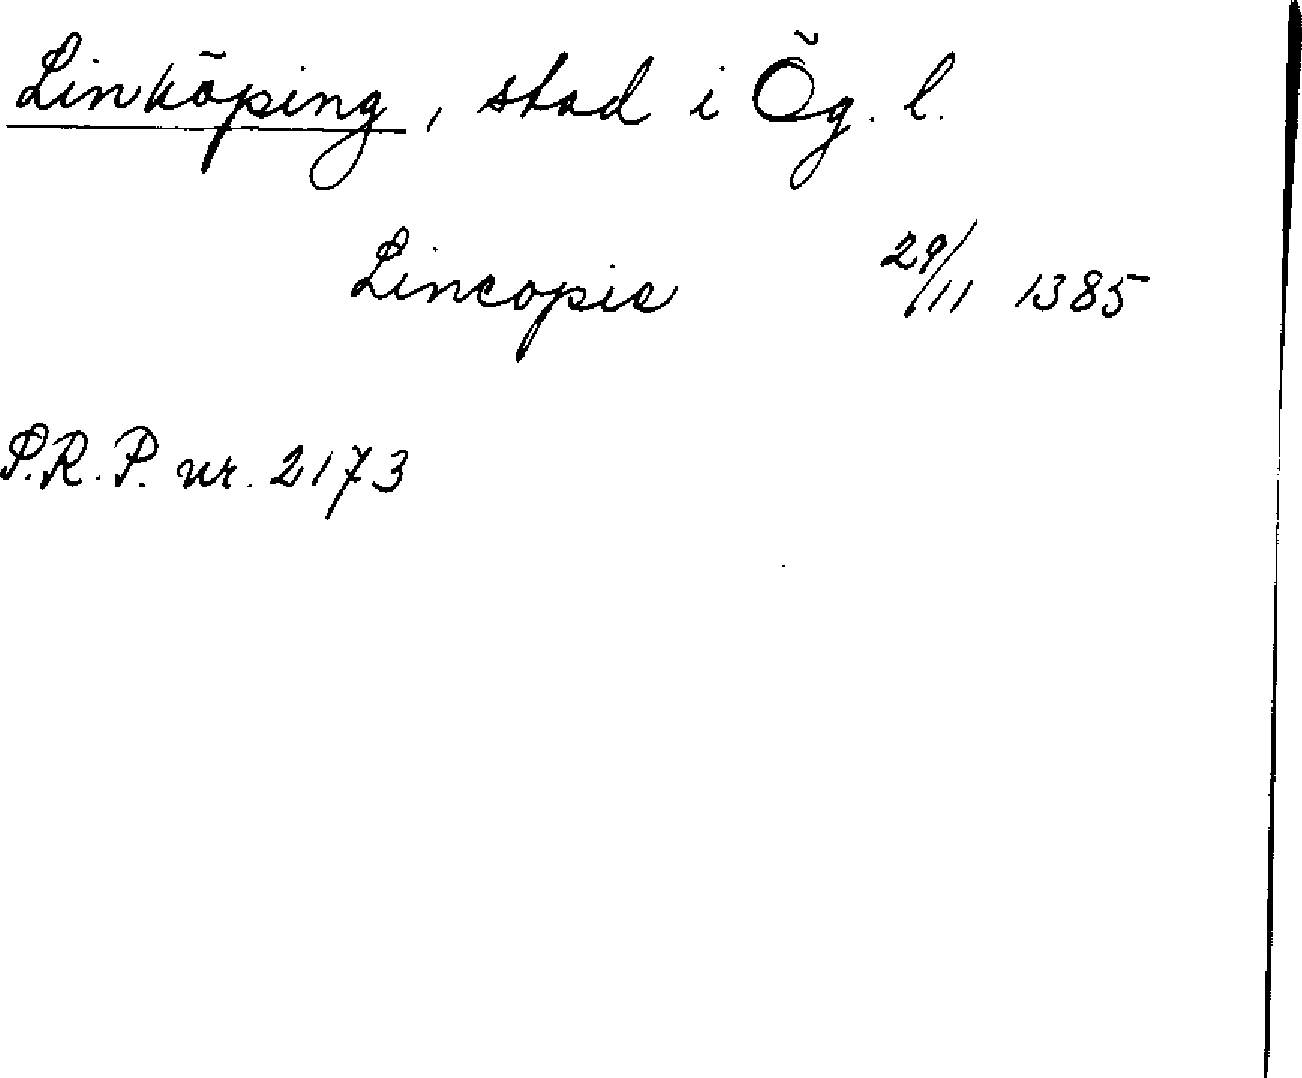 Linköping, stad i Ög. l.
Lincopie 29/11 1385
S.R.P. nr. 2173